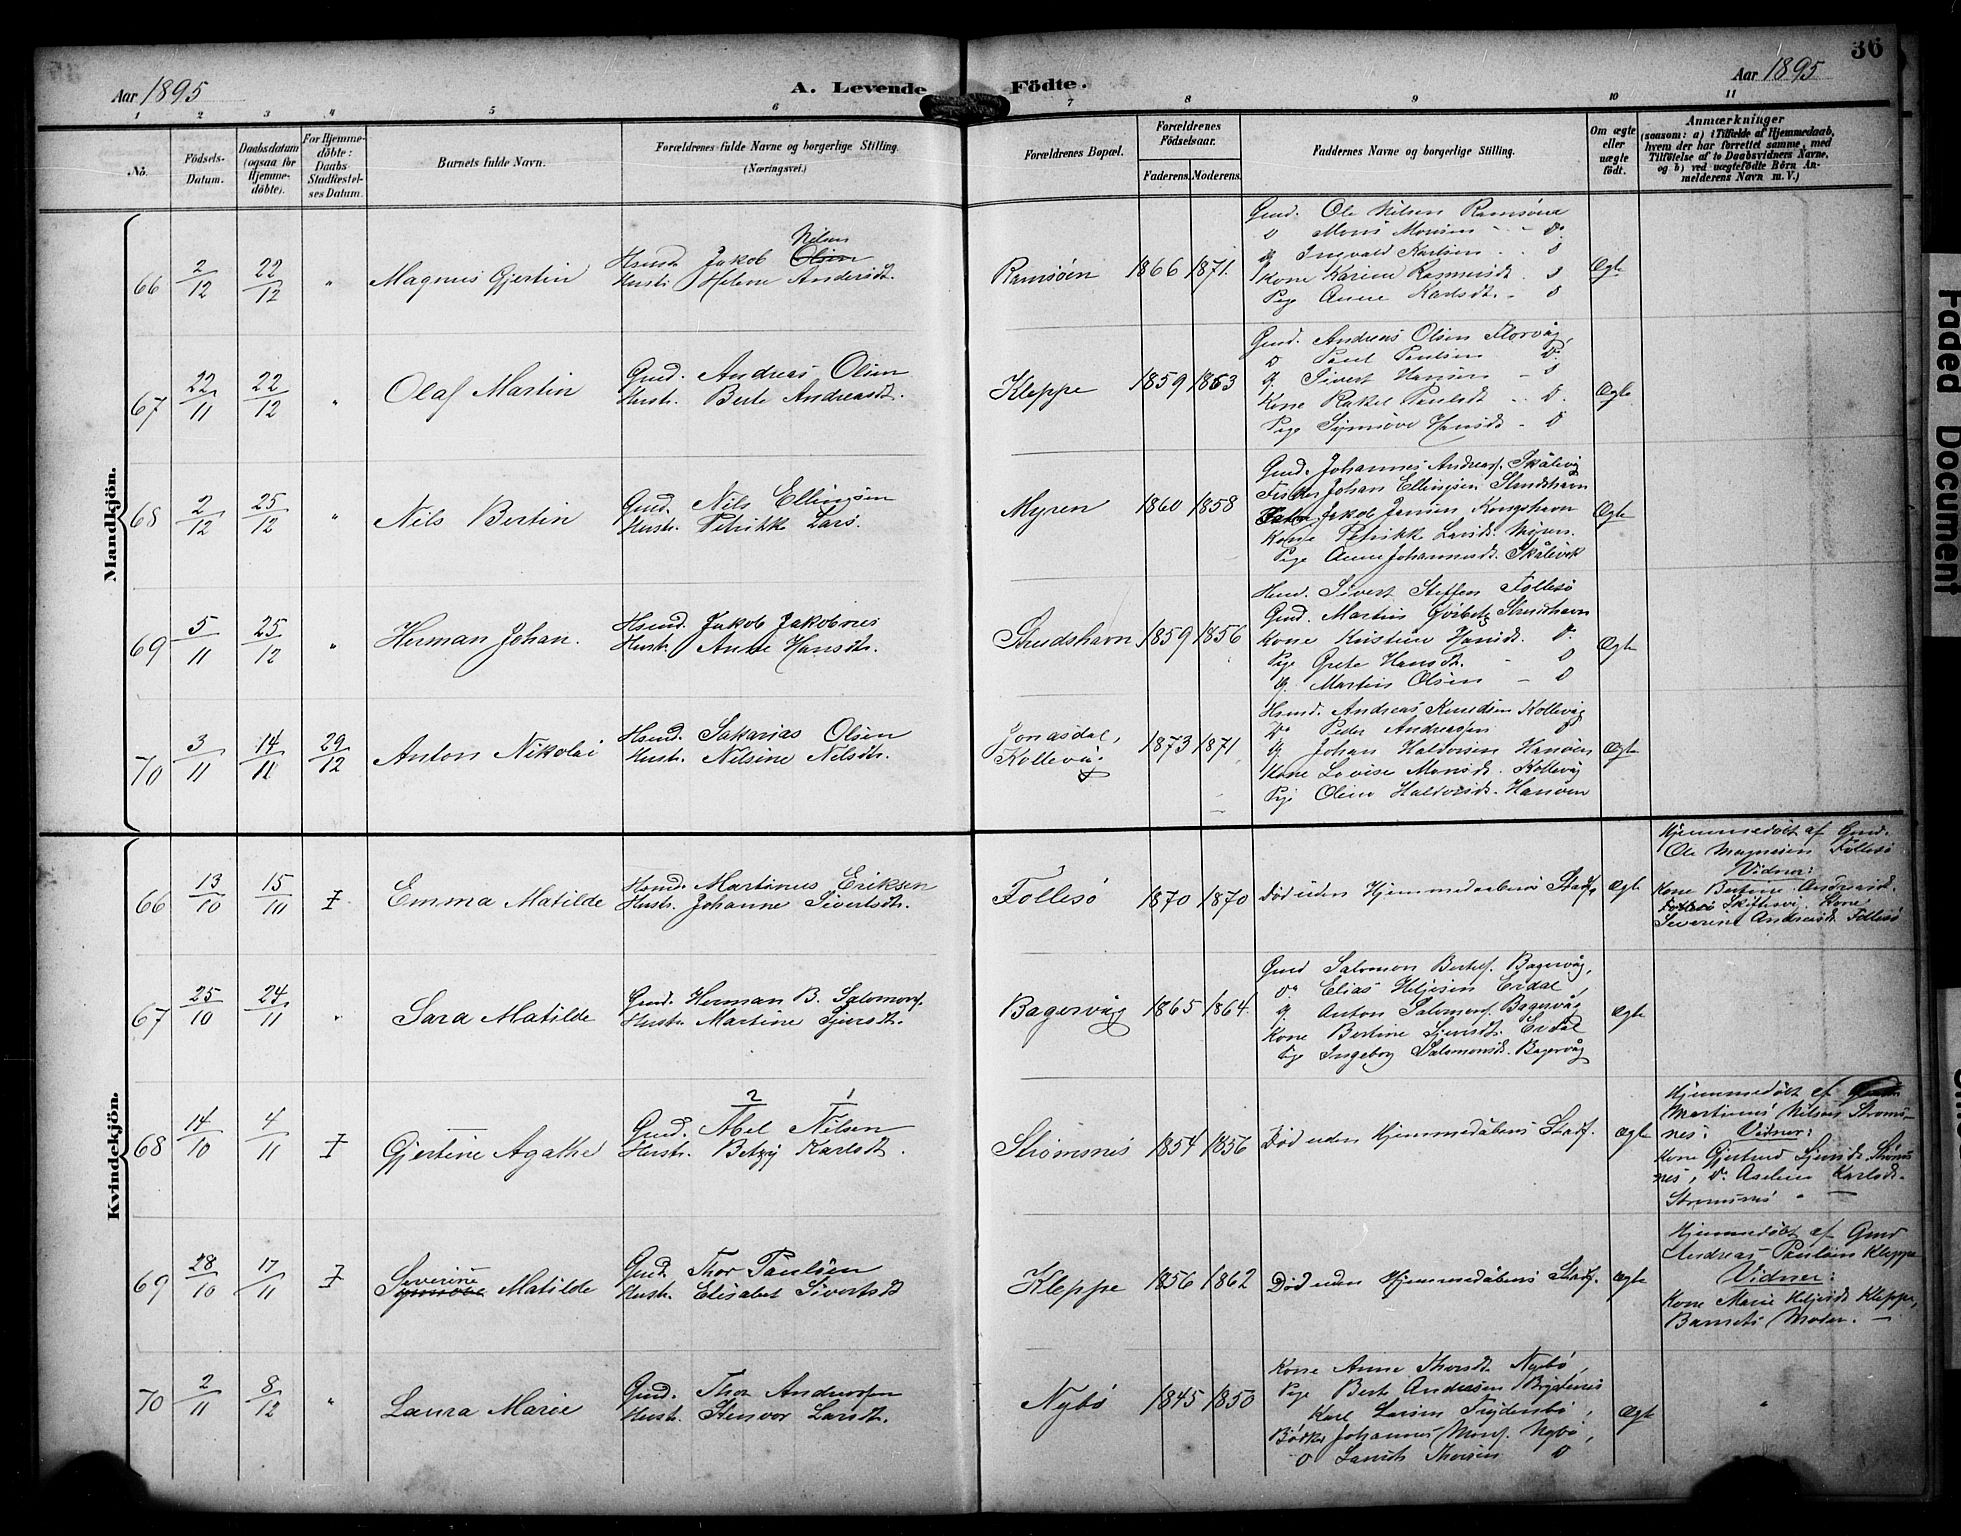 36
Aar 1895
A. Levende Födte.
Aar 1895
1 2 3 4 5 6 7 8 9 10 11
No.
Födsels-Datum.
Daabsdatum (ogsaa for Hjemme-döbte).
For Hjemme-döbte: Daabs-Stadfæstel-ses Datum.
Barnets fulde Navn.
Forældrenes fulde Navne og borgerlige Stilling.
(Næringsvei.)
Forældrenes Bopæl.
Forældrenes Födselsaar.
Faderens. Moderens.
Faddernes Navne og borgerlige Stilling.
Om ægte eller uægte födt.
Anmærkninger
(saasom: a) i Tilfælde af Hjemmedaab, hvem der har forrettet samme, med Tilföielse af to Daabsvidners Navne, og b) ved uægtefödte Börn Anmelderens Navn m. V.)
Mandkjön.
66 2/12 22/12 " Magnus Gjertin
Hsmd. Jakob Olsen Nilsen
Hustr. Helene Andersdt.
Ramsöen 1866 1871.
Gmd. Ole Nilsen Ramsöen
D Mons Monsen - - Do
Ingvald Karlsen - D
Kone Karine Rasmusdt. D
Pige Anne Karlsdt. - D
Ægte
67 22/11 22/12 " Olaf Martin
Gmd. Andreas Olsen
Hustr. Berte Andreasdt.
Kleppe 1859 1863
Gmd. Andreas Olsen Florvåg,
D Poul Paulsen D.
G. Sivert Hansen - D
Kone Rakel Paulsdt - D.
Pige Synnöve Hansdt - D
Ægte
68 2/12 25/12 " Nils Bertin
Gmd. Nils Ellingsen
Hustr. Petrikke Lars.
Myren 1860 1858
Gmd. Johannes Andreas. Skålevig
Fisker Johan Ellingsen Strudshavn
Jakob Jansen Kongshavn
Kone Petrikke Larsdt. Myren.
Pige Anne Johannesdt. Skålevik
Ægte
69 5/11 25/12 " Herman Johan.
Hsmd. Jakob Jakobsen
Hustr. Anne Hansdtr.
Strudshavn 1859 1856
Hsmd. Sivert Steffen Follesö
Gmd. Martin Strudshavn
Kone Kristine Hansdt. D.
Pige Grete Hansdt. - D
G. Martin Olsen - D
Ægte
70 3/11 14/11 29/12 Anton Nikolai
Hsmd. Sakarias Olsen
Hustr. Nilsine Nilsdtr.
Jonasdal,
Kollevåg 1873 1871
Hsmd. Andreas Knudsen Kollevåg
Do Peder Andreasen D
G. Johan Haldorsen Hanöen
Kone Lovise Monsdt. Kollevåg
Pige Oline Haldorsdt. Hanöen
Ægte
Kvindekjön.
66 13/10 15/10 Emma Matilde
Hsmd. Martinus Eriksen
Hustr. Johanne Sivertsdtr.
Follesö 1870 1870
Död uden Hjemmedaabens Stadf.
Ægte
Hjemmedöbt af Gmd.
Ole Magnesen Follesö
Vidner:
Kone Bertine Andreasdt.
Follesö Skiftesvig. Kone
Severine Andreasdt. Follesö
67 25/10 24/11 " Sara Matilde
Gmd. Herman B. Salomonsf.
Hustr. Martine Sjursdt.
Bagervåg 1865 1864.
Gmd Salomon Bertelf. Bagervåg,
Do Elias Heljesen Erdal,
G. Anton Salomonf. Bagervåg
Kone Bertine Sjursdt. Erdal
Pige Ingeborg Salomonsdt. Bagervåg
Ægte
68 14/10 4/11 Gjertine Agathe
2 1
Gmd. Abel Nilsen
Hustr. Betzy Karlsdt.
Strömsnes 1854 1856
Död uden Hjemmedåbens Stadf.
Ægte
Hjemmedöbt af
Martinus Nilsen Ströms-
nes: Vidner:
Kone Gjertrud Sjursdt. Ströms-
nes, Do Aseline Karlsdt.
Strömsnes " —
69 28/10 17/11 Synnöve Severine Matilde
Gmd. Thor Paulsen
Hustr. Elisabet Sivertsdt
Kleppe 1856 1862
Död uden Hjemmedåbens Stadf.
Ægte
Hjemmedöbt af Gmd
Andreas Paulsen Kleppe
Vidner:
Kone Marie Heljesdt Kleppe,
Barnets Moder. —
70 2/11 8/12 " Laura Marie
Gmd. Thor Andersen
Hustr. Stenvor Larsdt.
Nybö 1845 1850
Kone Anne Thorsdt. Nybö,
Pige Berte Andersen
Karl Larsen
Bödker Johannes Monsf. Nybö,
D Laurits Thorsen D
Ægte "
Faded Document